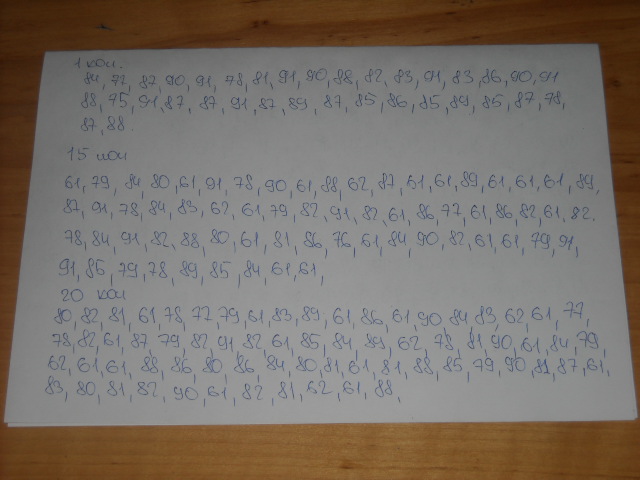 1 кои.
84, 72, 87, 90, 91, 78, 81, 91, 90, 88, 82, 83, 91, 83, 86, 90, 91
88, 75, 91, 87, 87, 91, 87, 89, 87, 85, 86, 85, 89, 85, 87, 78,
87, 88.
15 кои
61, 79, 84, 80, 61, 91, 78, 90, 61, 88, 62, 87, 61, 61, 89, 61, 61, 61, 89,
87, 91, 78, 84, 83, 62, 61, 79, 82, 91, 82, 61, 86, 77, 61, 86, 82, 61, 82.
78, 84, 91, 82, 88, 80, 61, 81, 86, 76, 61, 84, 90, 82, 61, 61, 79, 91,
91, 85, 79, 78, 89, 85, 84, 61, 61,
20 кои
80, 82, 81, 61, 78, 77, 79, 61, 83, 89, 61, 86, 61, 90, 84, 83, 62, 61, 77,
78, 82, 61, 87, 79, 82, 91, 82, 61, 85, 84, 89, 62, 78, 81, 90, 61, 84, 79,
62, 61, 61, 88, 86, 80, 86, 84, 80, 81, 61, 81, 88, 85, 79, 90, 81, 87, 61,
83, 80, 81, 82, 90, 61, 82, 81, 62, 61, 88,